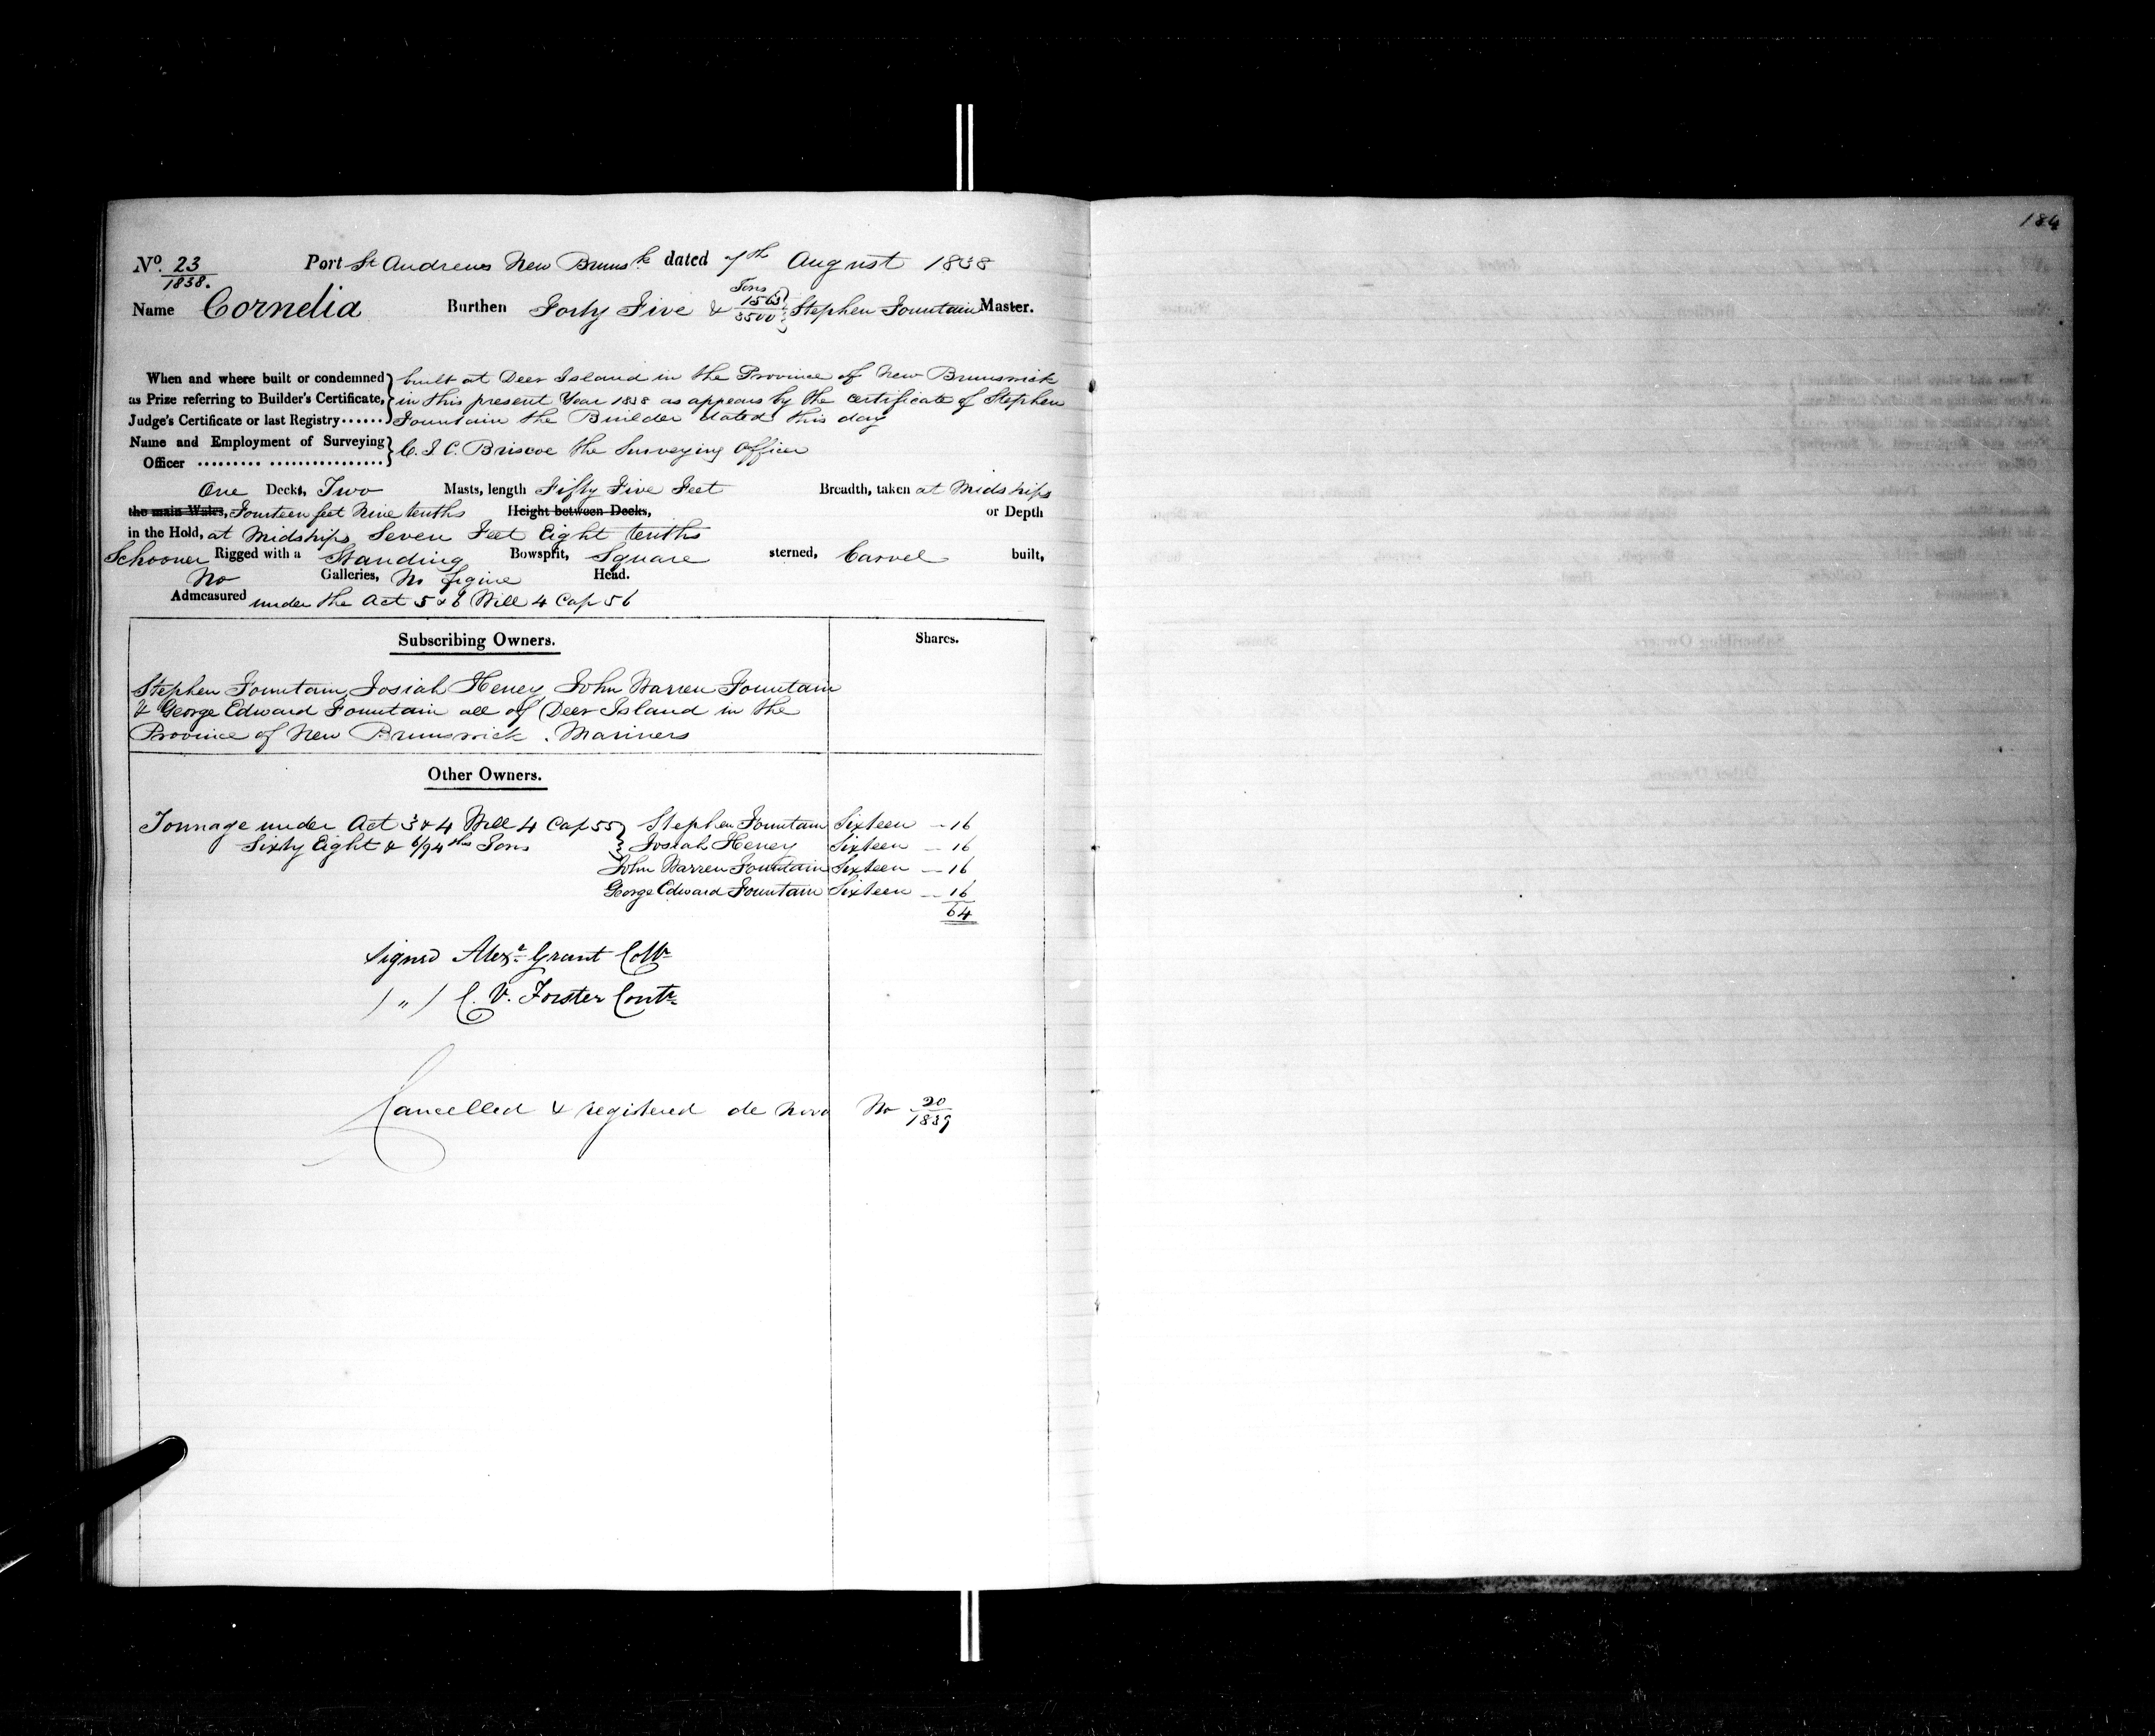 184
No. 23/1838. Port St Andrews New Brunsk dated 7th August 1838
Name Cornelia Burthen Forty Five & 1563/3500 Tons Stephen Fountain Master.
When and where built or condemned } built at Deer Island in the Province of New Brunswick
as Prize referring to Builder's Certificate, } in this present Year 1838 as appears by the Certificate of Stephen
Judge's Certificate or last Registry...... } Fountain the Builder dated this day
Name and Employment of Surveying } C. J. C. Briscoe the Surveying Officer
Officer ......... ................
One Decks, Two Masts, length Fifty Five Feet Breadth, taken at Midships
the main Wales, Fourteen feet Nine tenths Height between Decks, or Depth
in the Hold, at Midships Seven Feet Eight tenths
Schooner Rigged with a Standing Bowsprit, Square sterned, Carvel built,
No Galleries, No figure Head.
Admeasured under the Act 5 & 6 Will 4 Cap 56
Subscribing Owners. Shares.
Stephen Fountain, Josiah Heney, John Warren Fountain
& George Edward Fountain all of Deer Island in the
Province of New Brunswick. Mariners
Other Owners.
Tonnage under Act 3 & 4 Will 4 Cap 55 } Stephen Fountain Sixteen — 16
Sixty Eight & 6/94ths Tons } Josiah Heney Sixteen — 16
John Warren Fountain Sixteen — 16
George Edward Fountain Sixteen — 16
64
Signed Alexr Grant Collr
/ " / C. V. Forster Contr
Cancelled & registered de novo No 20/1839